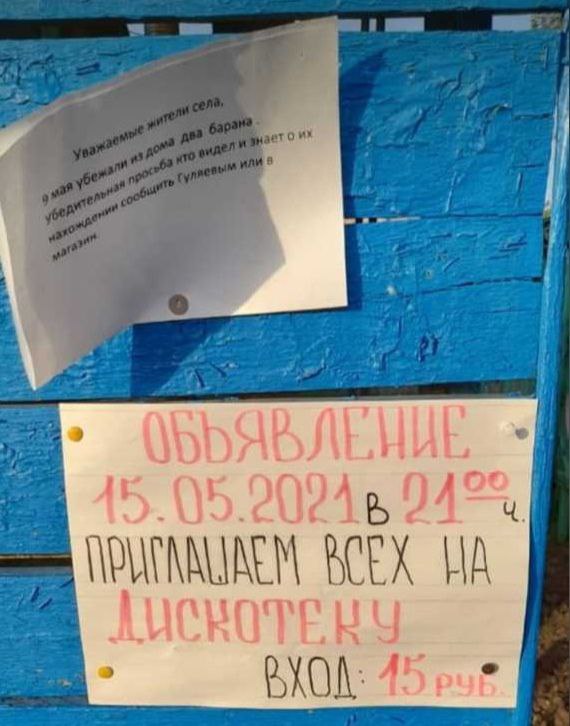 Уважаемые жители села,
9 мая убежали из дома два барана .
убедительная просьба кто видел и знает о их
нахождении сообщить Гуляевым или в
магазин.
ОБЬЯВЛЕНИЕ
15.05.2021 в 21⁰⁰ ч.
ПРИГЛАШАЕМ ВСЕХ НА
ДИСКОТЕКУ
ВХОД: 15 РУБ.